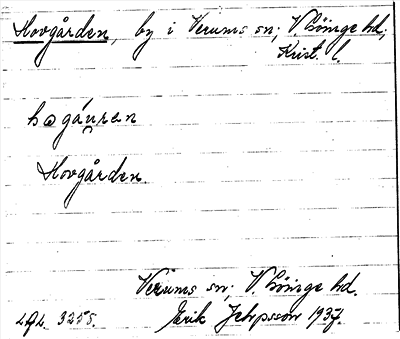 Hovgården, by i Verums sn; V. Göinge hd;
Krist. l.
hogáuren
Hovgården.
Verums sn; V Göinge hd.
3258. Erik Jeppsson 1937.